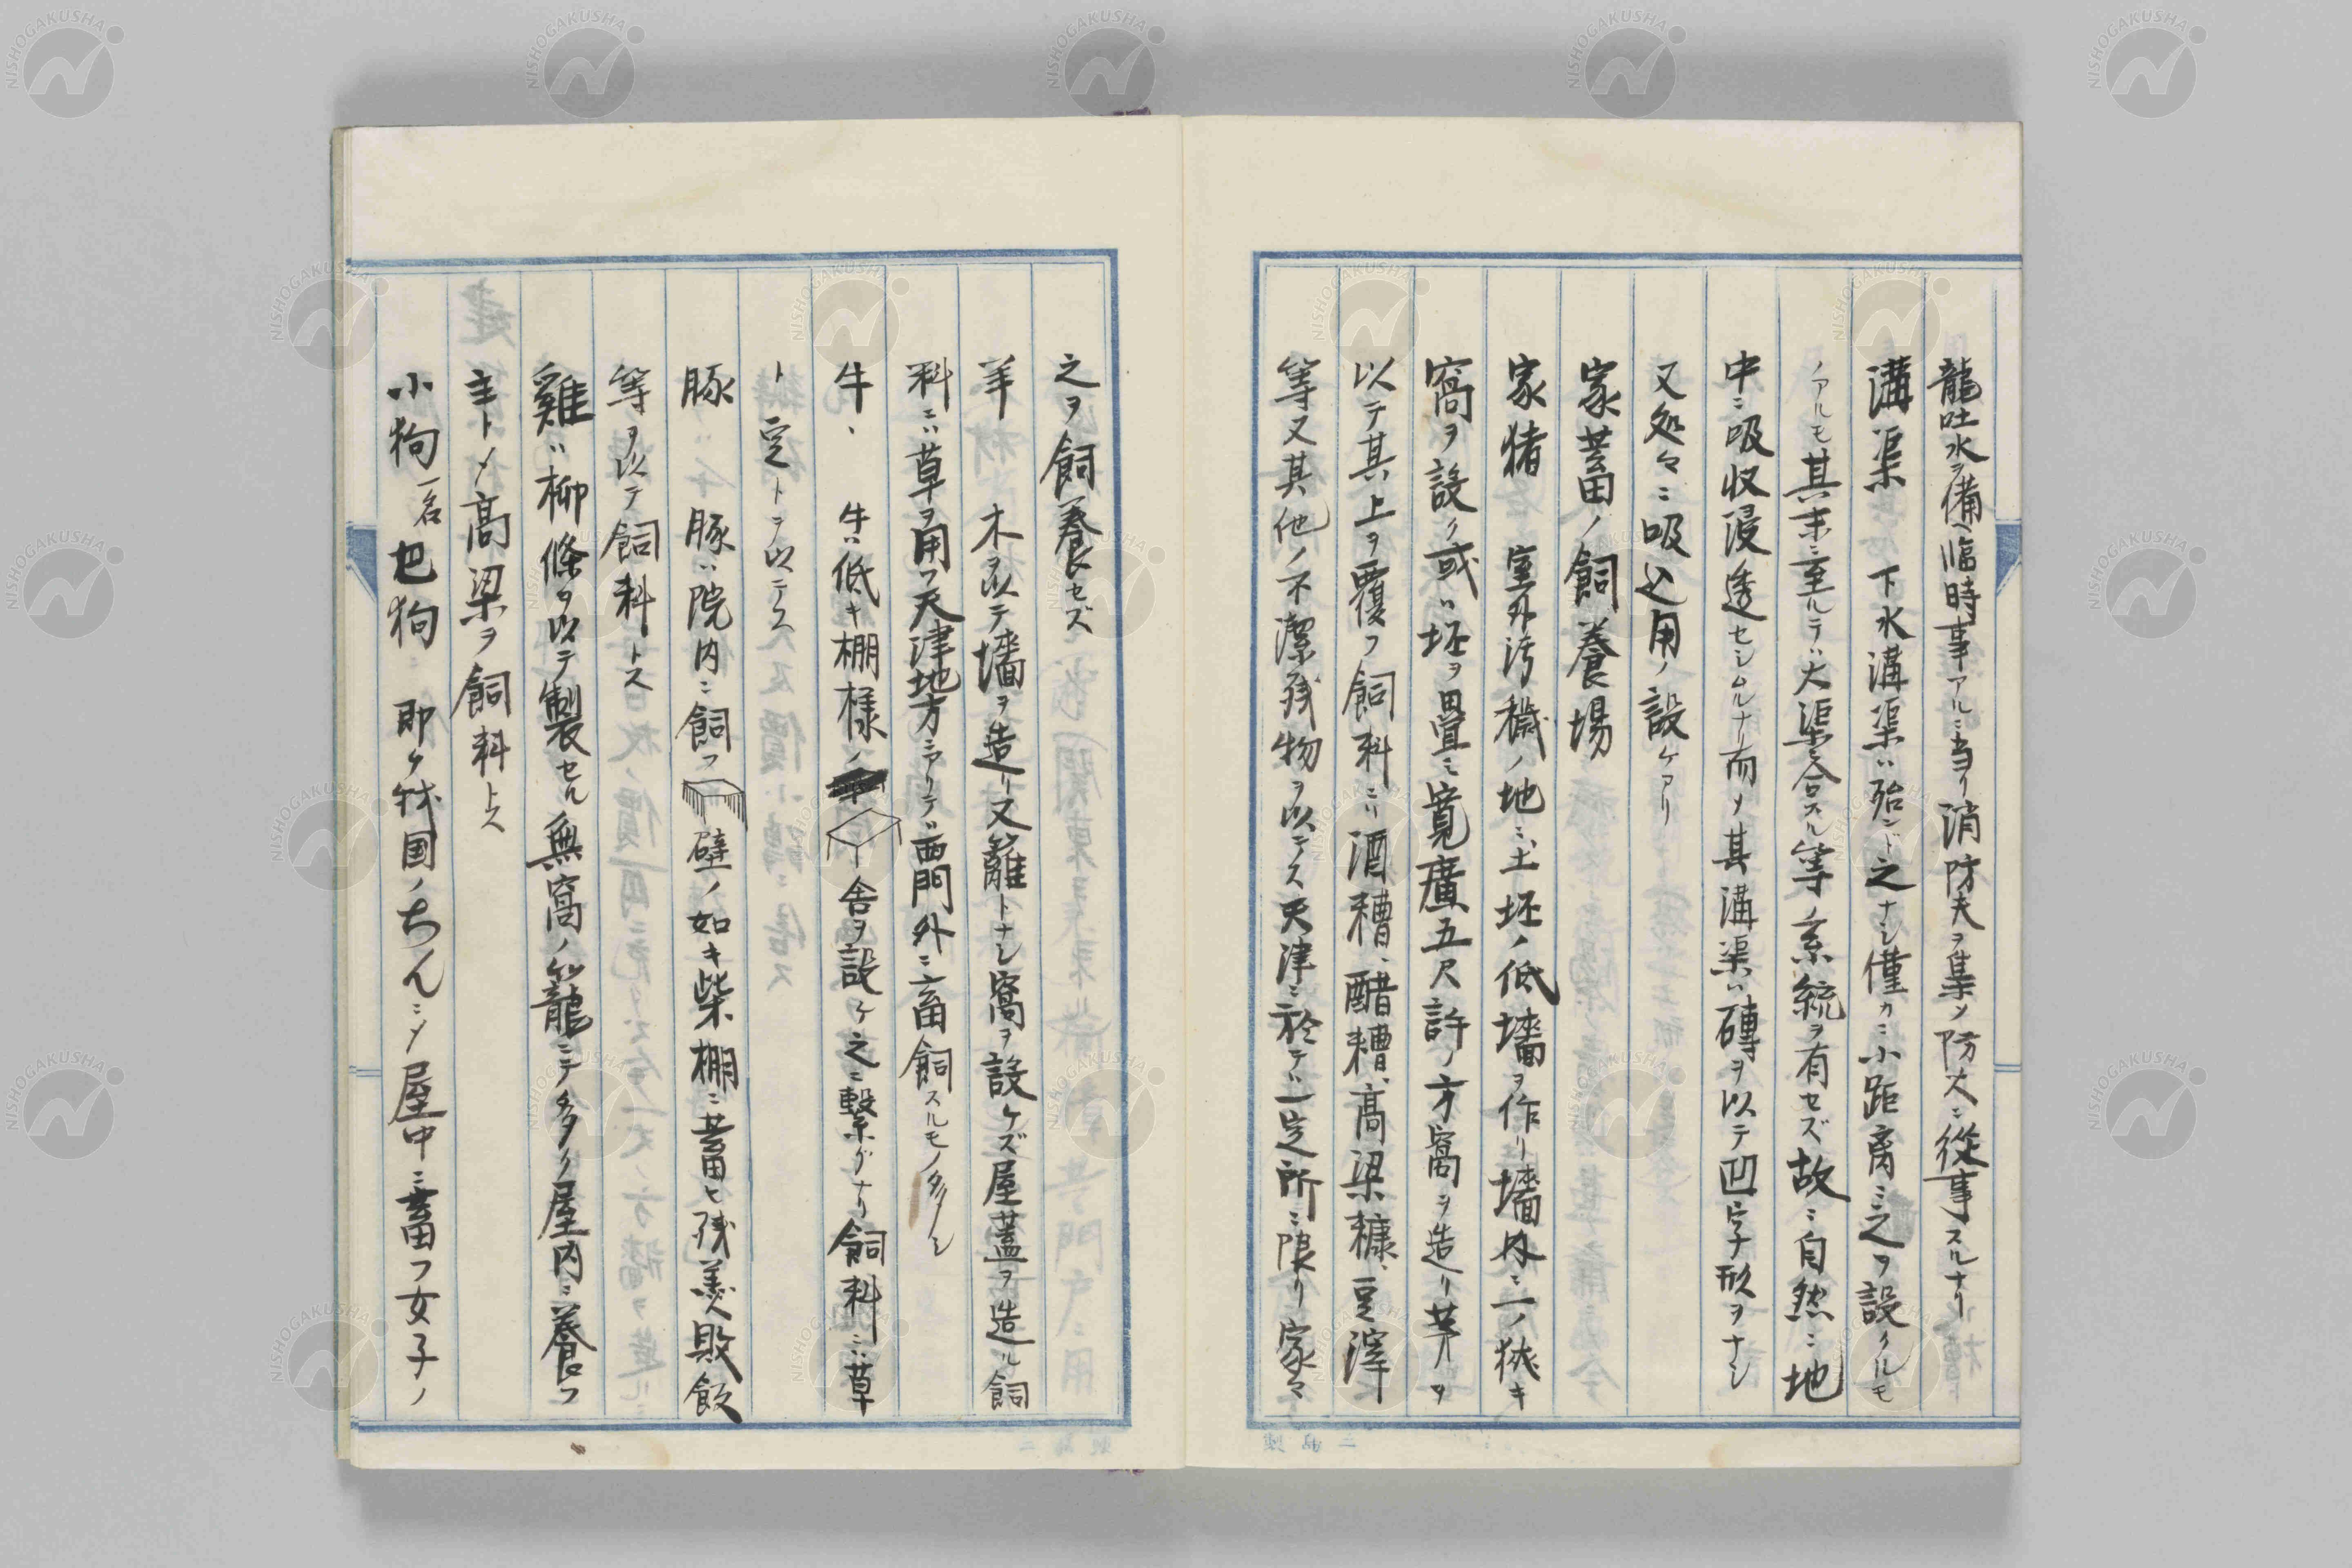 龍吐水ヲ備ヘ臨時事アルニ当リ消防夫ヲ集メ防火ニ從事スルナリ
溝渠　下水溝渠ハ殆ンド之ナシ僅カニ小距离ニ之ヲ設クルモ
ノアルモ其末ニ至ルテハ大渠ニ合スル等ノ系統ヲ有セズ故ニ自然ニ地
中ニ吸収浸透セシムルナリ而メ其溝渠ハ磚ヲ以テ凹字形ヲナシ
又処々ニ吸込用ノ設ケアリ
家蓄ノ飼養場
家猪　室外汚穢ノ地ニ土坯ノ低墻ヲ作リ墻内ニ一ノ狹キ
窩ヲ設ク或ハ坯ヲ畳ミ寛廣五尺許ノ方窩ヲ造リ茅ヲ
以テ其上ヲ覆フ飼料ニハ酒糟、醋糟、高梁糠、豆滓
等又其他ノ不潔残物ヲ以テス天津ニ於テハ一定所ニ限リ家々
之ヲ飼養セズ
羊　木ヲ以テ墻ヲ造リ又籬トナシ窩ヲ設ケズ屋蓋ヲ造ル飼
料ニハ草ヲ用フ天津地方ニアリテハ西門外ニ畜飼スルモノ多シ
牛、　牛ハ低キ棚様ノ舎ヲ設ケ之ニ繋グナリ飼料ニハ草
ト豆トヲ以テス
豚　豚ハ院内ニ飼フ壁ノ如キ柴棚ニ蓄ヒ残羹敗飯
等ヲ以テ飼料トス
雞ハ柳條ヲ以テ製セル無窩ノ籠ニテ多ク屋内ニ養フ
主トメ高梁ヲ飼料トス
小狗　一名巴狗　即ク我国ノちんニメ屋中ニ蓄フ女子ノ
NISHOGAKUSHA